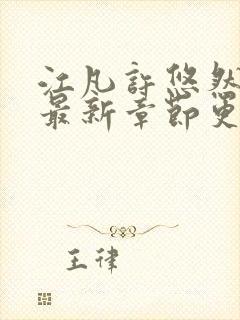 江凡許悠然
最新章節更
王律